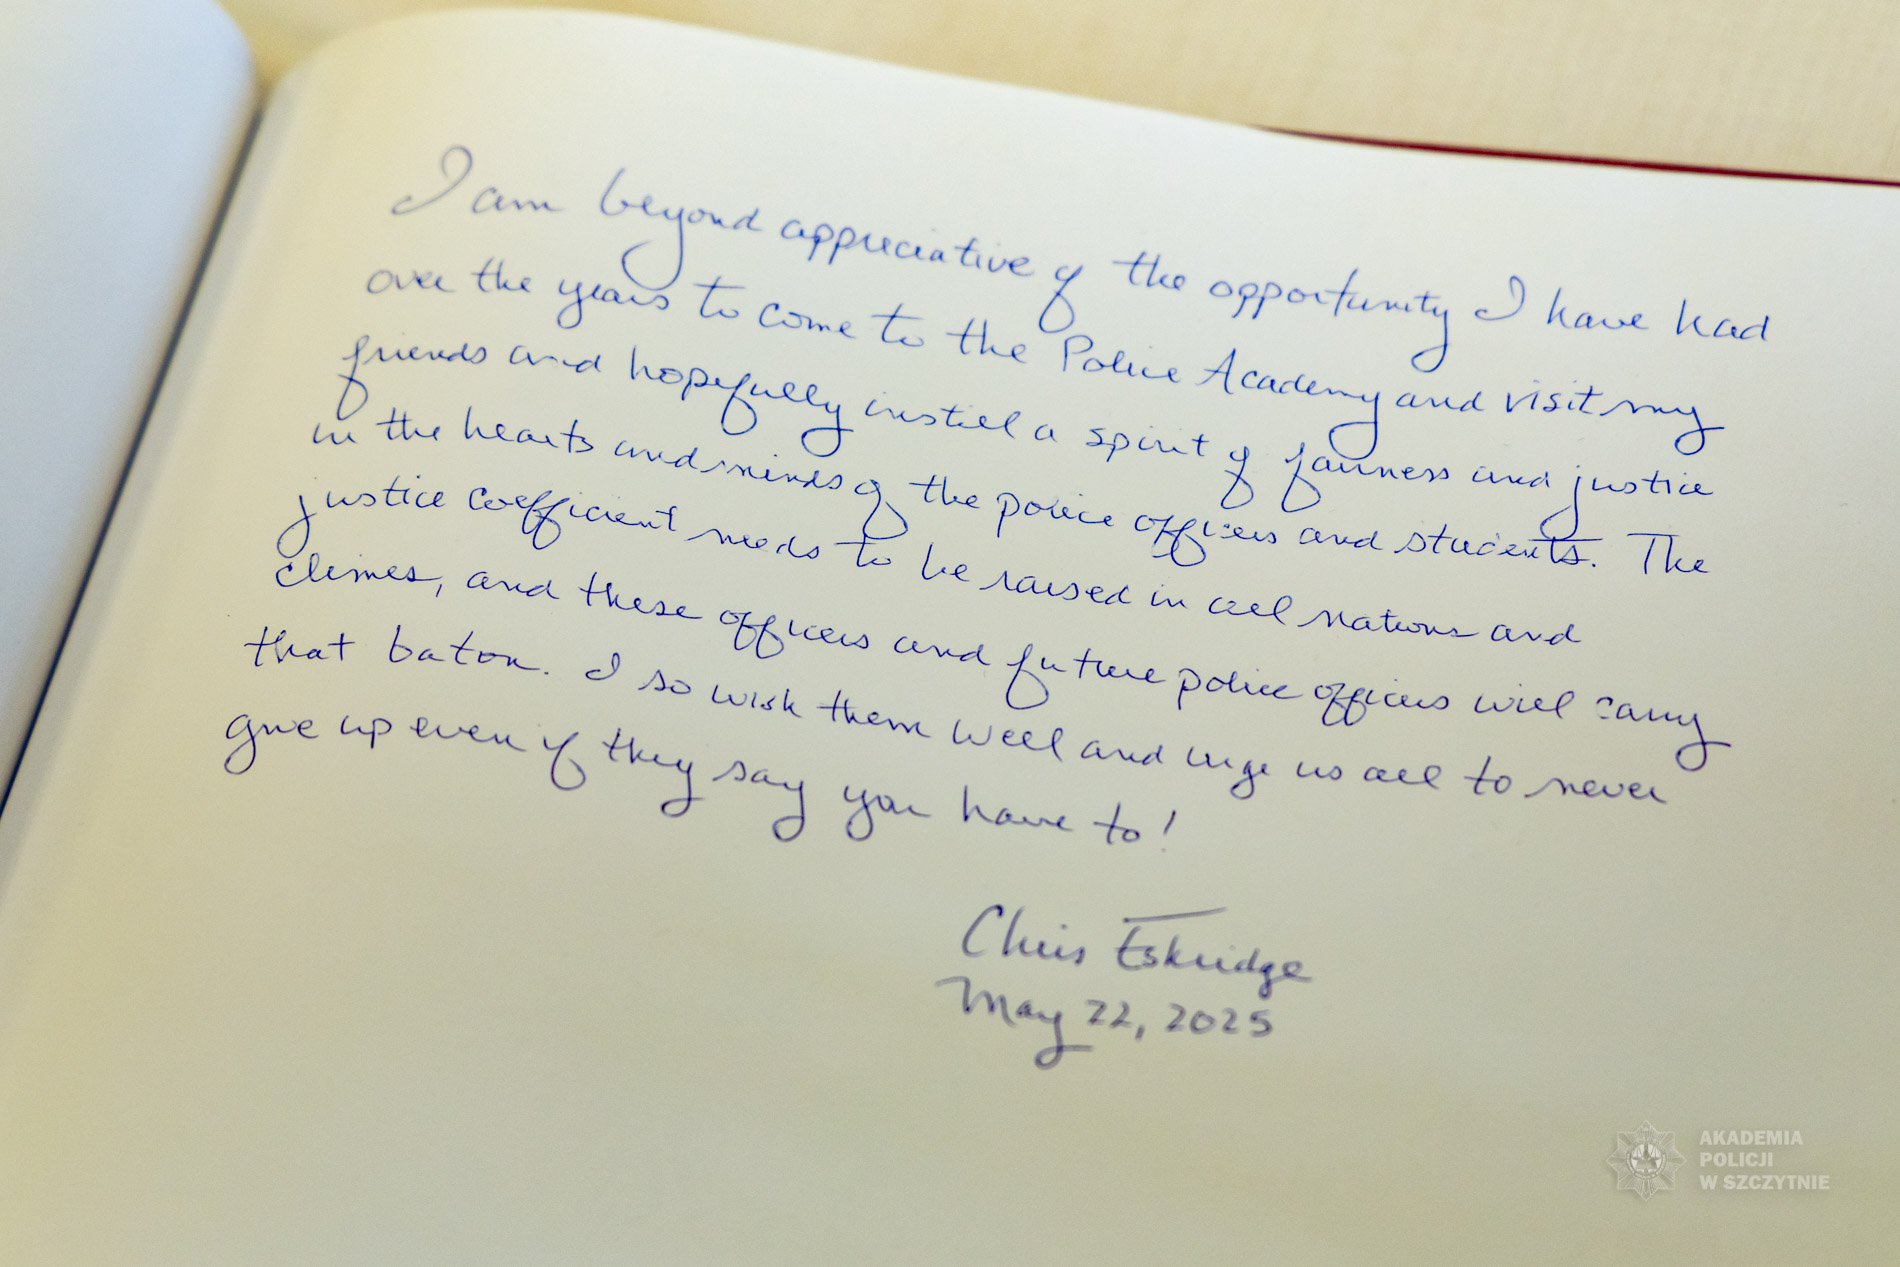 I am beyond appreciative of the opportunity I have had
over the years to come to the Police Academy and visit my
friends and hopefully instill a spirit of fairness and justice
in the hearts and minds of the police officers and students. The
justice coefficient needs to be raised in all nations and
climes, and these officers and future police officers will carry
that baton. I so wish them well and urge us all to never
give up even if they say you have to!
Chris Eskridge
May 22, 2025
AKADEMIA
POLICJI
W SZCZYTNIE